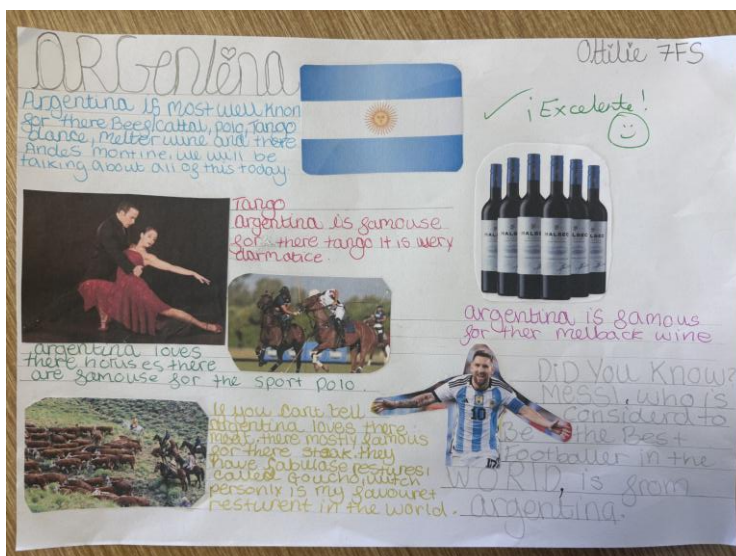 ARGentina
Ottilie 7FS
Argentina is most well knon
for there Beef/Cattal, polo, Tango
dance, melter wine and there
Andes montine, we will be
talking about all of this today.
✓ ¡Excelente!
Tango
argentina is famouse
for there tango it is very
darmatice.
MALBEC
argentina is famous
for ther melback wine
argentina loves
there horuses there
are famouse for the sport polo.
If you cant tell
argentina loves there
meat, there mostly famous
for there steak. they
have fabulase restures
called goucho, witch
personlx is my favouret
resturent in the world.
10
Did You Know?
Messi, who is
considerd to
Be the Best
Footballer in the
WORLD, is from
argentina.